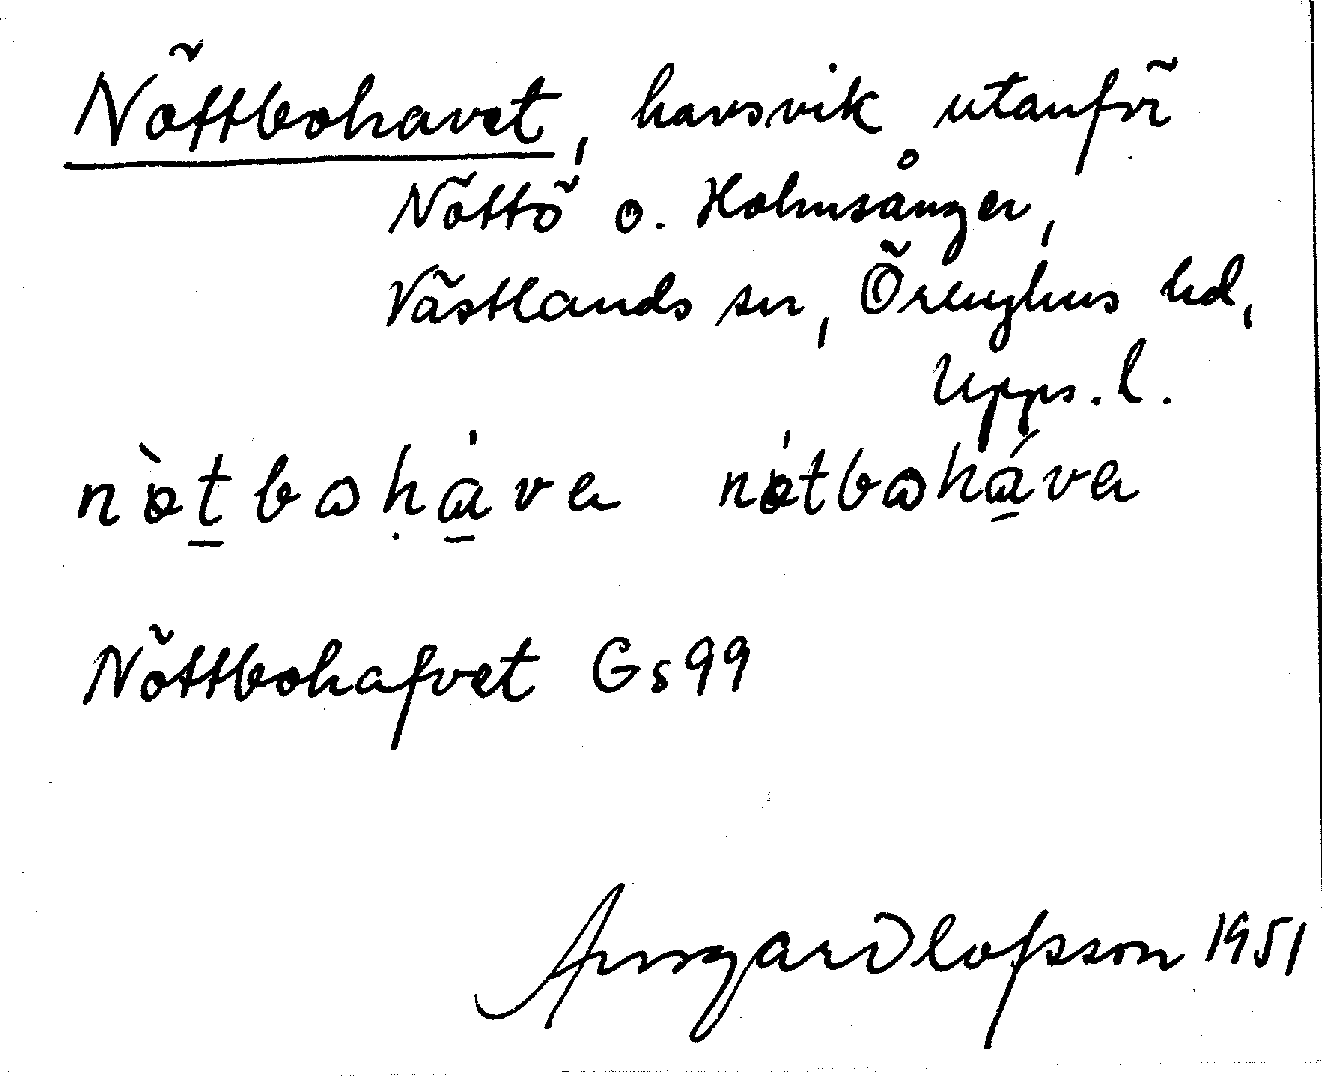 Nöttbohavet, havsvik utanför
Nöttö o. Holmsånger,
Västlands sn, Örbyhus hd,
Upps. l.
nòtboháve nótboháve
Nöttbohafvet Gs 99
Ansgar Olofsson 1951